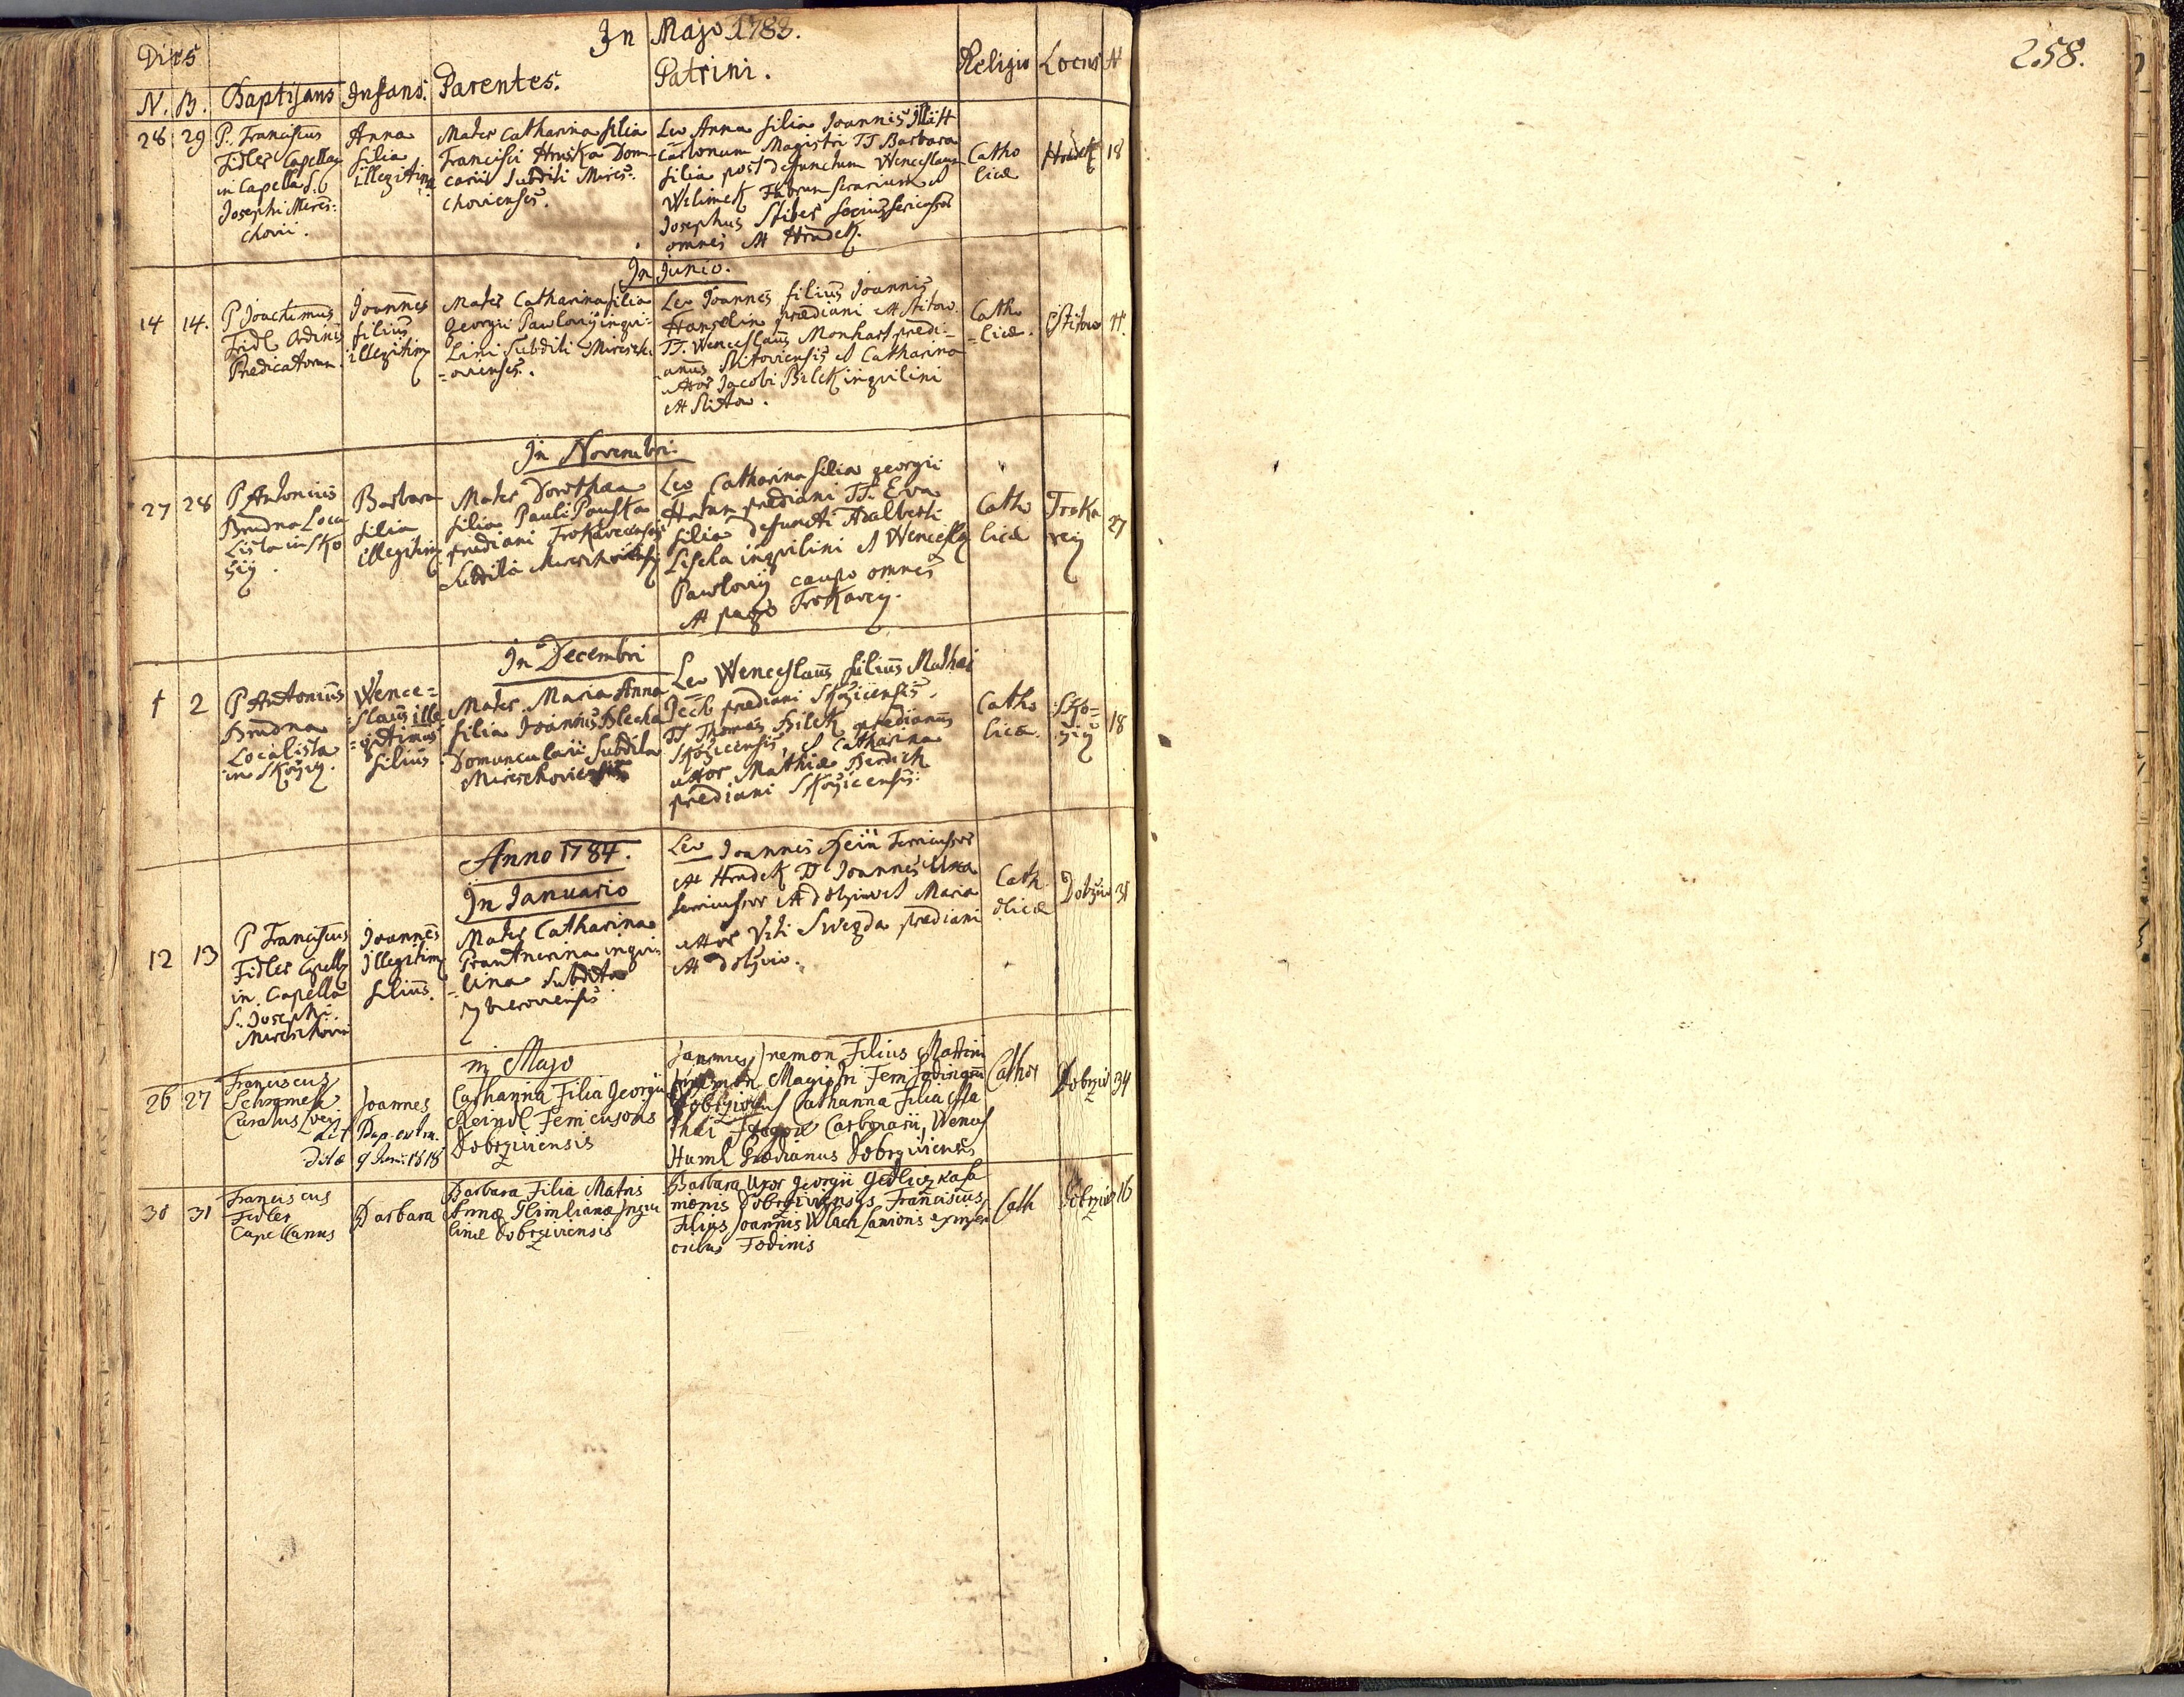 In Majo 1783.
Dies
N. B. Baptisans Infans. Parentes. Patrini. Religio Locus N
28 29 P. Franciscus
Fidler Capellan
in Capella S.
Josephi Mires:
chovii.
Anna
filia
illegitima
Mater Catharina filia
Francisci Hruska Dom-
carii Subditi Mires:
choviensis.
Lev Anna filia Joannis
Carbonum Magistri TT Barbara
filia post defunctum Wenceslaum
Welimek Fabrum ferarium et
Josephus Stiber socius fericusor
omnes A Hradek.
Catho
licæ
Hradek
18
In Junio.
14 14. P Joachimus
Fridl Ordinis
Prædicatorum.
Joannes
filius
illegitim
Mater Catharina filia
Georgii Pawlovij inqui-
lini Subditi Miresch-
=oviensis.
Lev Joannes filius Joannis
Hanzlin prædiani A Stitow.
TT. Wenceslaus Monhart prædi-
anus Stitoviensis et Catharina
uxor Jacobi Bilek inquilini
A Stitow.
Catho
=licæ.
Stitow
11.
In Novembri.
27 28 P Antonius
Brudna Loca
Lista in Sko
žij.
Barbara
filia
illegitim
Mater Dorothæa
filia Pauli Pauska
prædiani Trokavecensis
Subdita Mireschoviensis
Lev Catharina filia georgii
prædiani TT. Eva
filia defuncti Adalberti
Lischa inquilini et Wenceslaus
Pawlovij caupo omnes
A pago Trokavij.
Catho
licæ
Troka
veij
27
In Decembri
1 2 P Antonius
Brudna
Localista
in Skožij.
Wence=
slaus ille
=gitimus
filius
Mater Maria Anna
filia Joannis Blecha
Domuncularii Subdita
Mireschoviensis
Lev Wenceslaus filius Mathæi
prædiani Skožicensis.
TT Thomas Bilek prædianus
Skožicensis, et Catharina
uxor Mathiæ Berdich
prædiani Skožicensis.
Catho
licæ.
Sko=
žij
18
Anno 1784.
In Januario
12 13 P Franciscus
Fidler Capell
in Capella
S. Josephi
Mireschovii
Joannes
illegitim
filius.
Mater Catharina
Prantnerina inqui-
=lina Subdita
Zbieroviensis
Lev Joannes Hein Ferricusor
A Hradek TT Joannes
ferricusor A Dobziv et Maria
uxor Viti Swezda prædiani
A Dobživ.
Cath
olicæ
Dobživ
31
in Majo
26 27 Franciscus
Schromek
Curatus
Joannes
Bap. extra.
9 Juni 1818
Catharina Filia Georgii
Reindl Fericusoris
Dobrziviensis
Joannes Jremon Filius Martini
Jremon Magistri
Dobrziviensis Catharina Filia Ma
thæi Carbonarii, Wences
Huml Prædianus Dobrziviensis
Cathol
Dobrziv
34
30 31 Franciscus
Fidler
Capellanus
Barbara
Barbara Filia Matris
Annæ Inqui
linæ Dobrziviensis
Barbara Uxor Georgii Gedliczka
Dobrziviensis Franciscus
Filius Joannis Wlach Lanionis ex inferi
oribus Fodinis
Cath
Dobrziv
16
258.